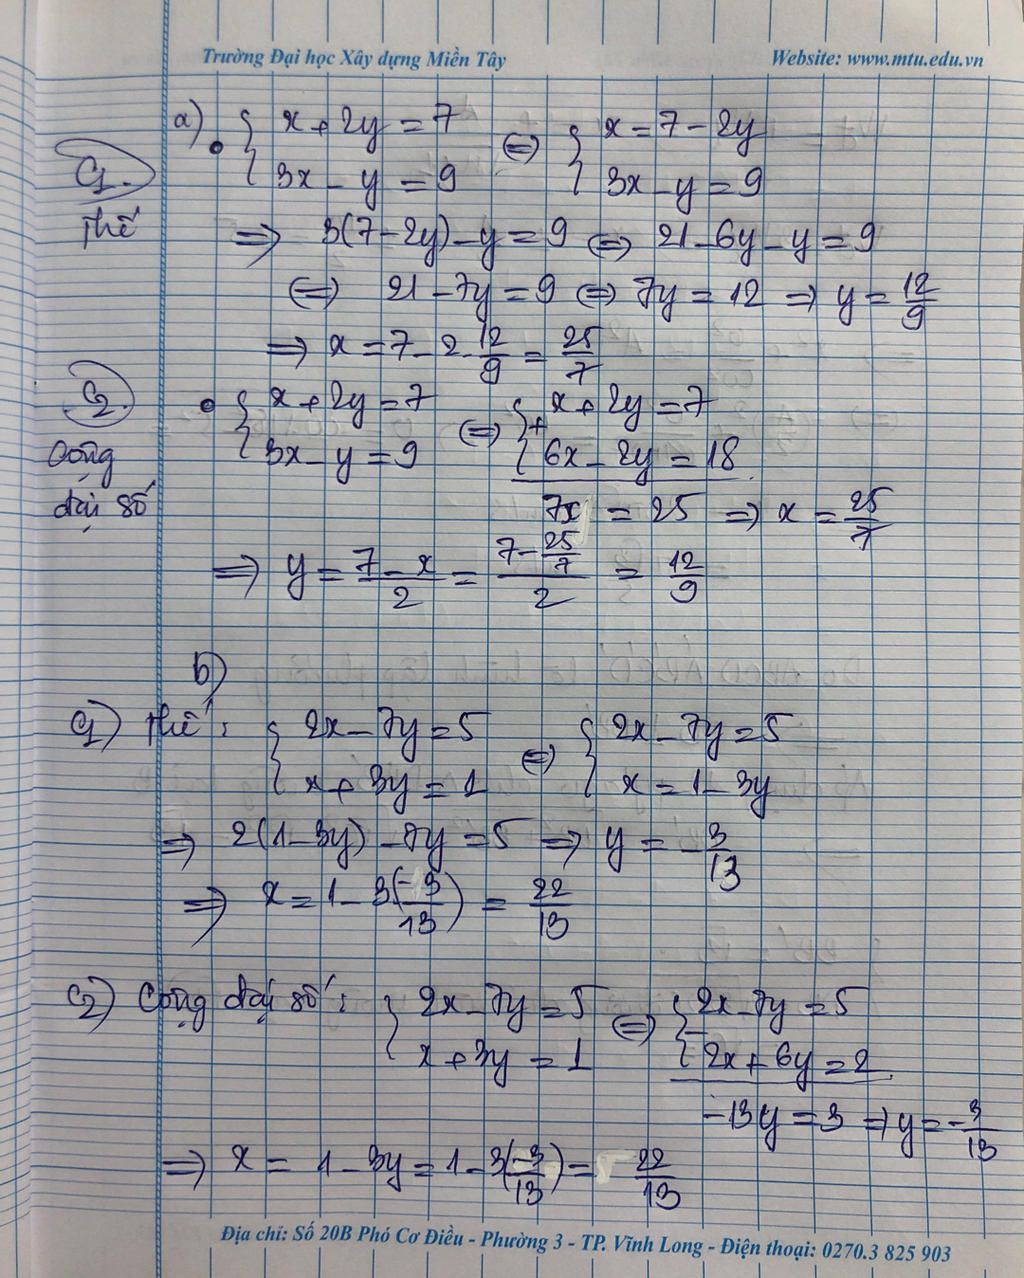 Trường Đại học Xây dựng Miền Tây Website: www.mtu.edu.vn
a) { x + 2y = 7 ⇔ { x = 7 - 2y
C1. { 3x - y = 9 { 3x - y = 9
Thế ⇒ 3(7 - 2y) - y = 9 ⇔ 21 - 6y - y = 9
⇔ 21 - 7y = 9 ⇔ 7y = 12 ⇒ y = 12/9
⇒ x = 7 - 2 . 12/9 = 25/7
C2. { x + 2y = 7 ⇔ + { x + 2y = 7
Cộng { 3x - y = 9 { 6x - 2y = 18
đại số 7x = 25 ⇒ x = 25/7
⇒ y = (7 - x)/2 = (7 - 25/7)/2 = 12/9
b)
C1) Thế: { 2x - 7y = 5 ⇔ { 2x - 7y = 5
{ x + 3y = 1 { x = 1 - 3y
⇒ 2(1 - 3y) - 7y = 5 ⇒ y = -3/13
⇒ x = 1 - 3(-3/13) = 22/13
C2) Cộng đại số: { 2x - 7y = 5 ⇔ - { 2x - 7y = 5
{ x + 3y = 1 { 2x + 6y = 2
-13y = 3 ⇒ y = -3/13
⇒ x = 1 - 3y = 1 - 3(-3/13) = 22/13
Địa chỉ: Số 20B Phó Cơ Điều - Phường 3 - TP. Vĩnh Long - Điện thoại: 0270.3 825 903